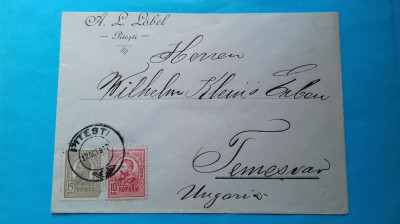 A. L. Löbel
Pitești
Herren
Wilhelm Klein's Erben
Temesvar
Ungaria
PITESTI
15
10
ROMANIA